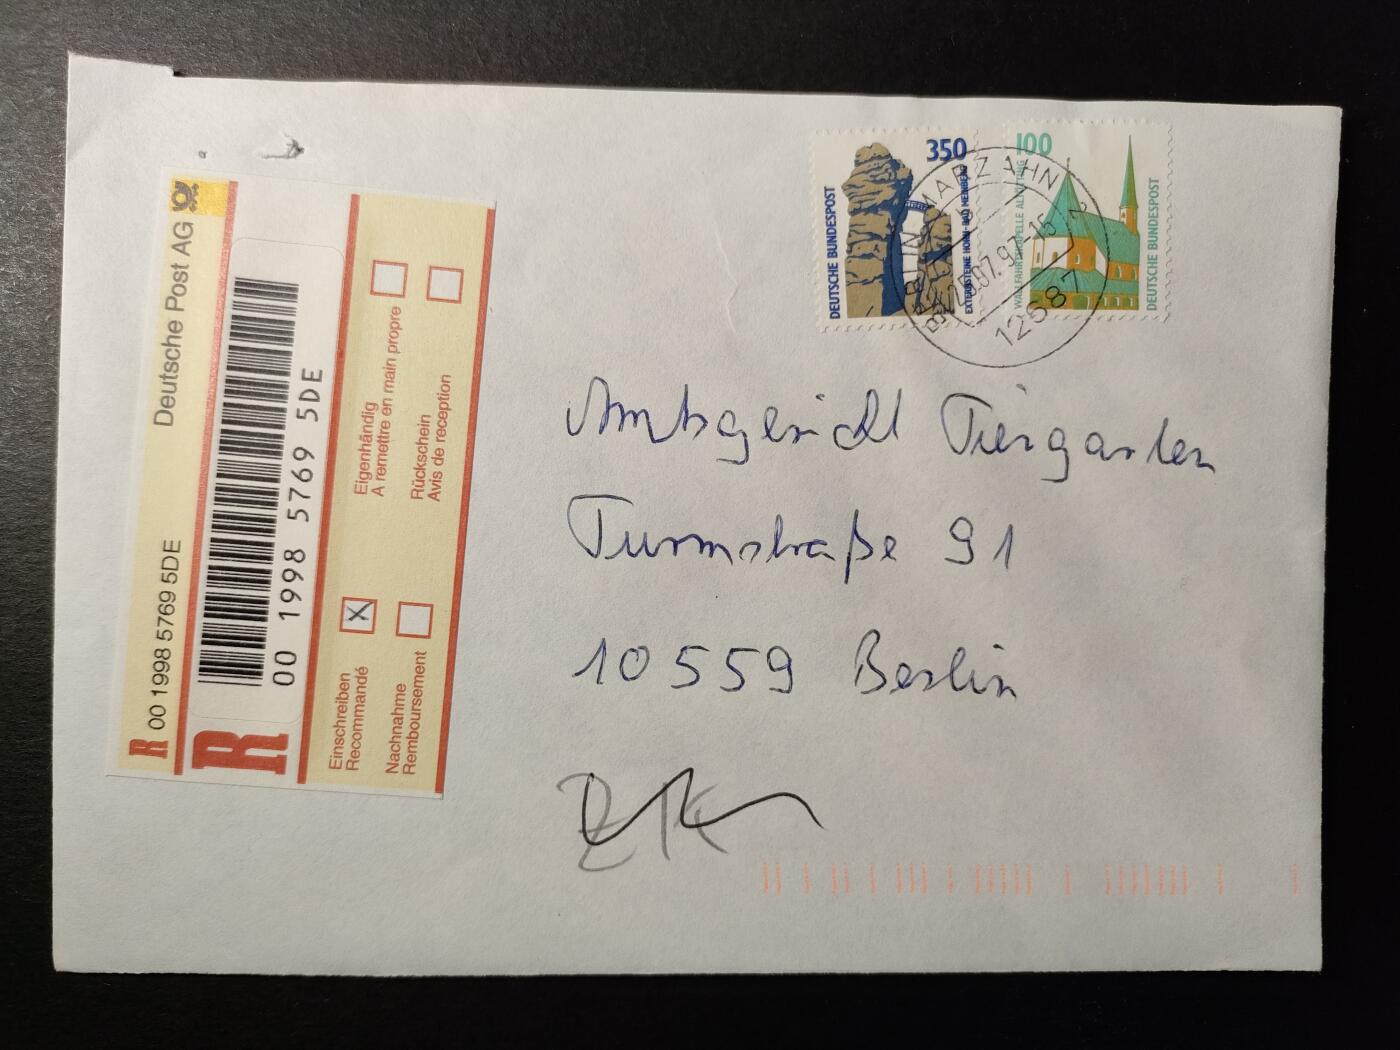 R 00 1998 5769 5DE Deutsche Post AG
R
00 1998 5769 5DE
Einschreiben
Recommandé
X
Nachnahme
Remboursement
Eigenhändig
A remettre en main propre
Rückschein
Avis de reception
DEUTSCHE BUNDESPOST
350
EXTERNSTEINE HORN-BAD MEINBERG
100
WALLFAHRTSKAPELLE ALTÖTTING
DEUTSCHE BUNDESPOST
BERLIN MARZAHN
12587
Amtsgericht Tiergarten
Turmstraße 91
10559 Berlin